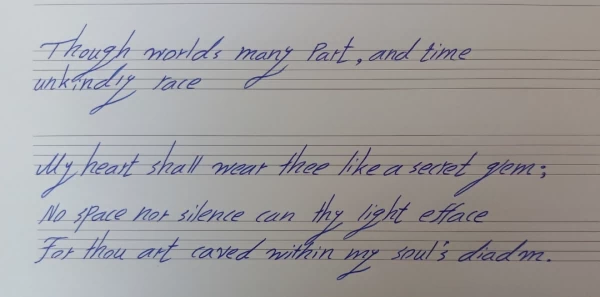 Though worlds many Part, and time
unkindly race
My heart shall wear thee like a secret gem;
No space nor silence can thy light efface
For thou art caved within my soul's diadm.